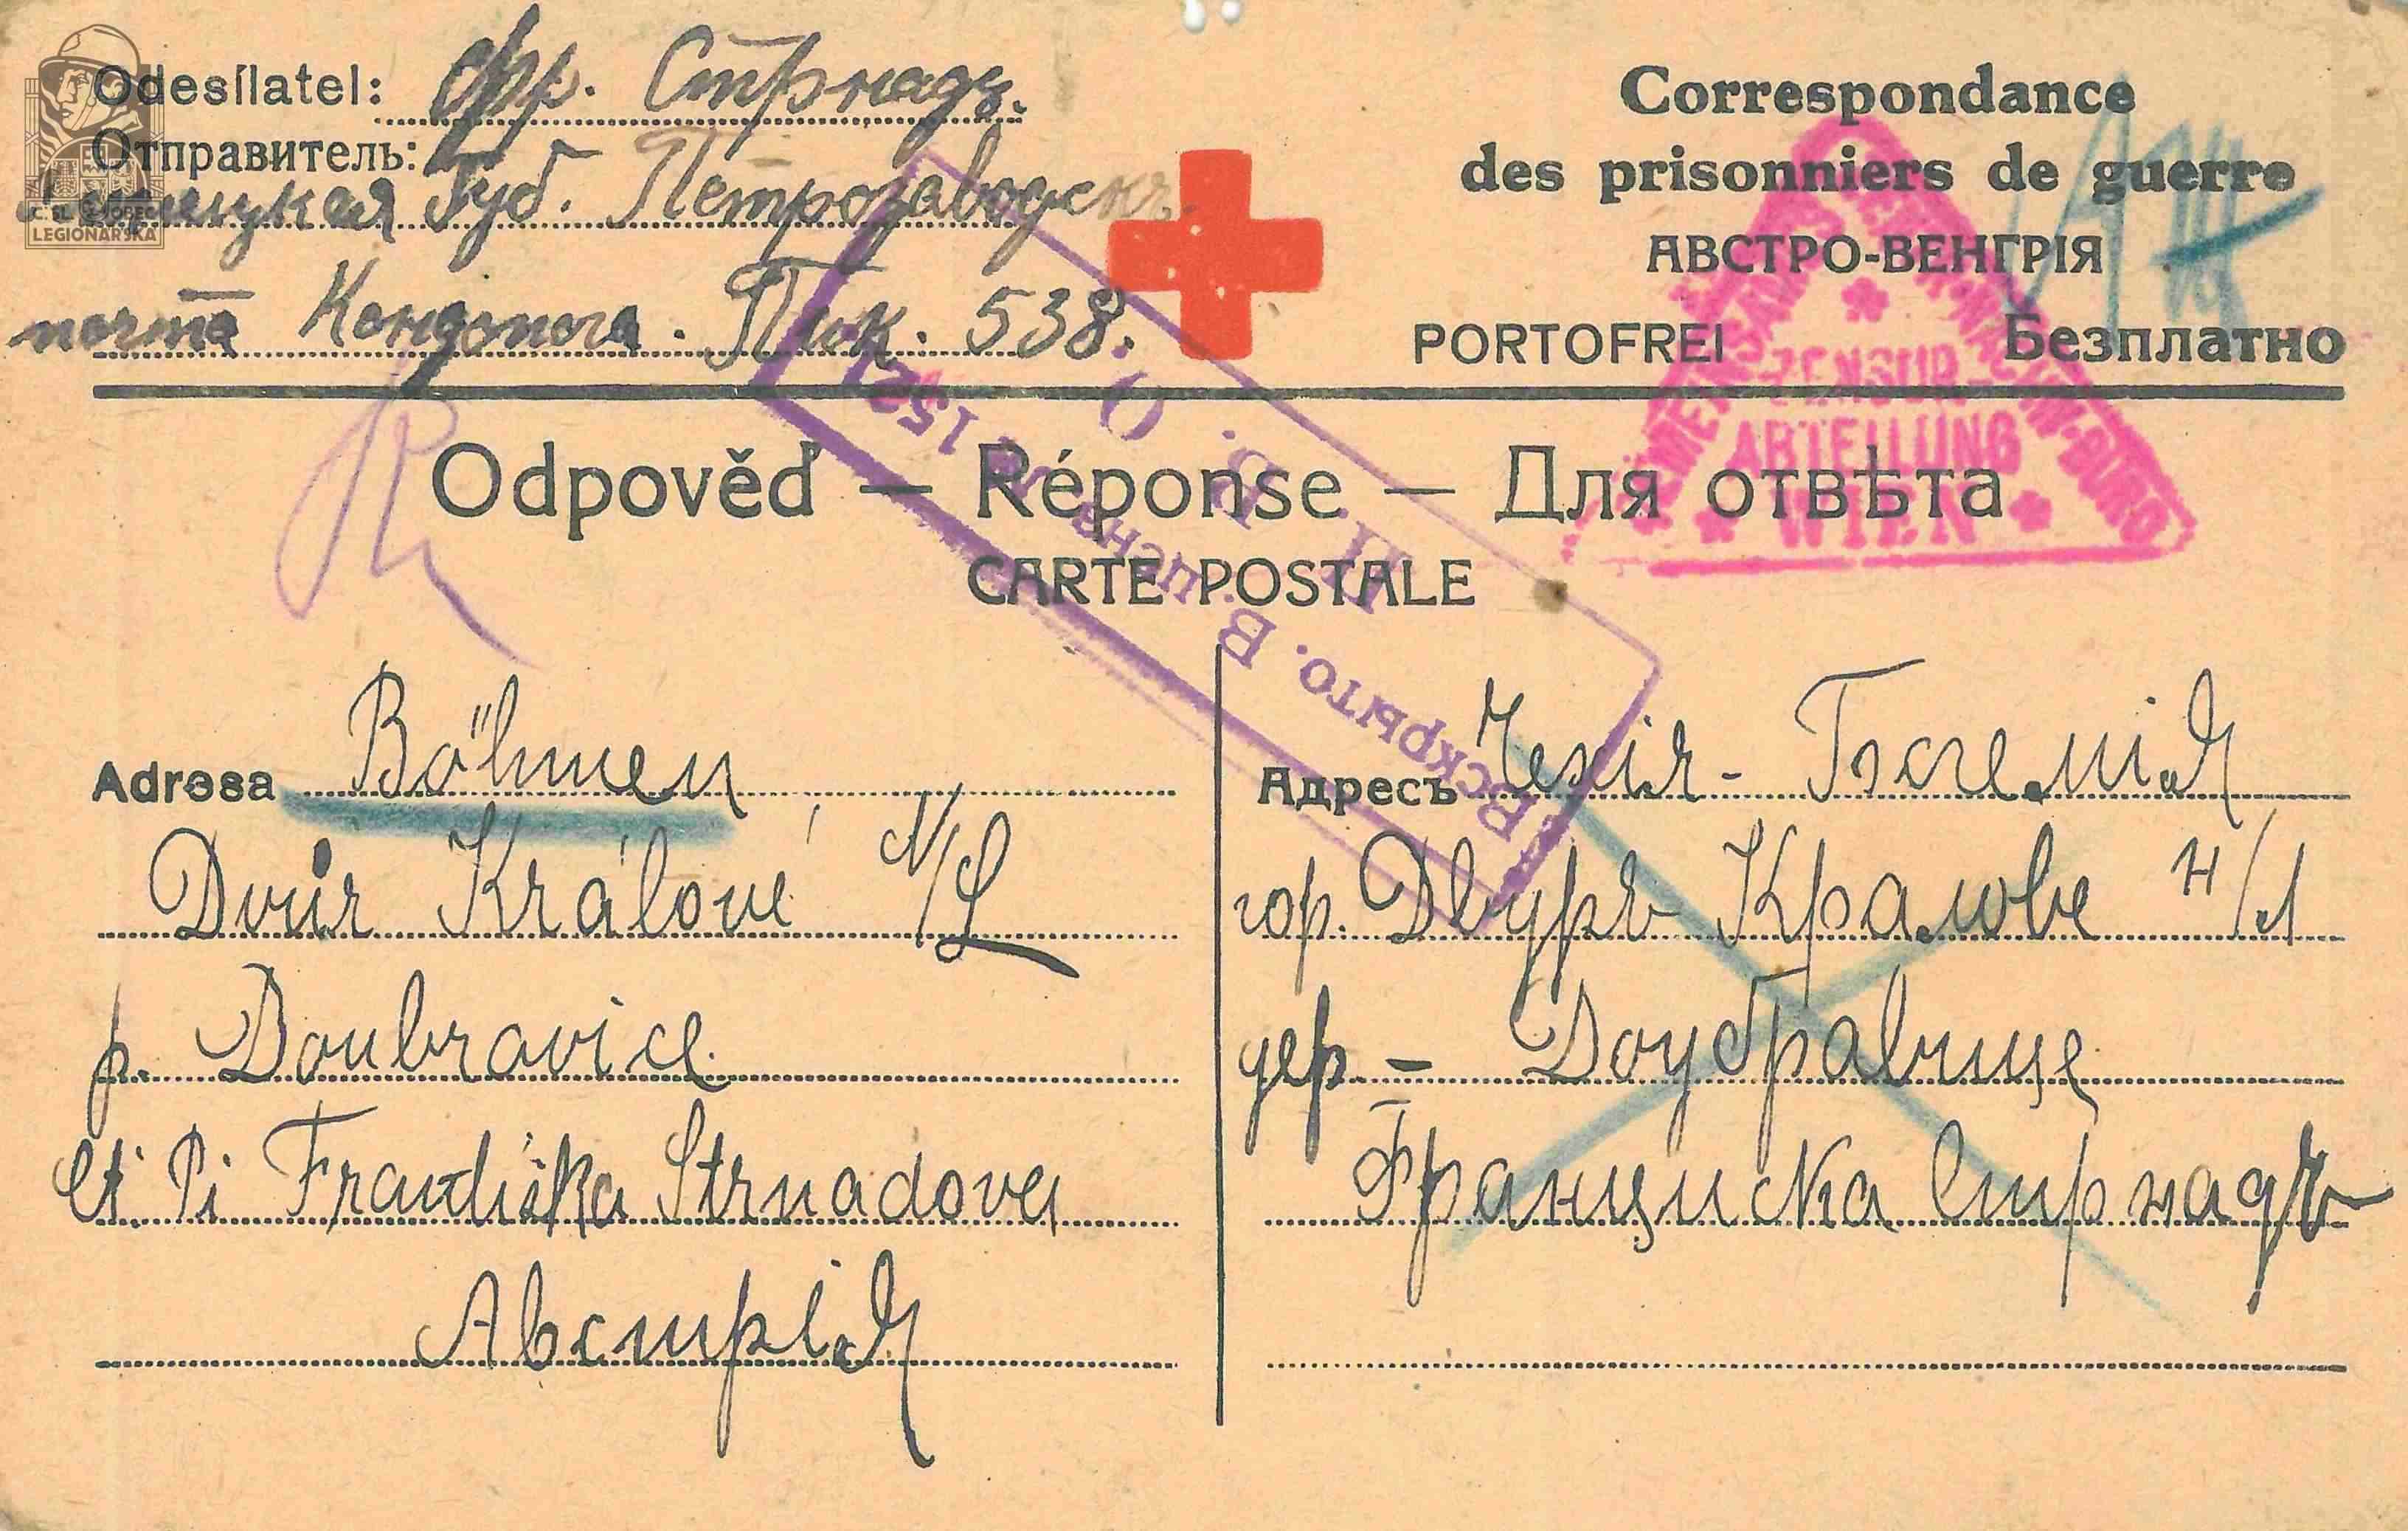 Odesílatel: Фр. Стрнадъ.
Отправитель:
Губ. Петрозаводскъ
почта Кондопога. Пик. 538.
Č. SL. OBEC
LEGIONÁŘSKÁ
Correspondance
des prisonniers de guerre
АВСТРО-ВЕНГРІЯ
PORTOFREI Безплатно
ZENSUR-
ABTEILUNG
WIEN
Odpověď — Réponse — Для отвѣта
CARTE POSTALE
Вскрыто. В. цензу
П. В. О.
Adresa Böhmen
Dvůr Králové N/L
p. Doubravice
Ct. Pí Františka Strnadova
Австрія
Адресъ Чехія - Богемія
гор. Двуръ Кралове н/Л
дер. - Доубравице
Франциска Стрнадъ